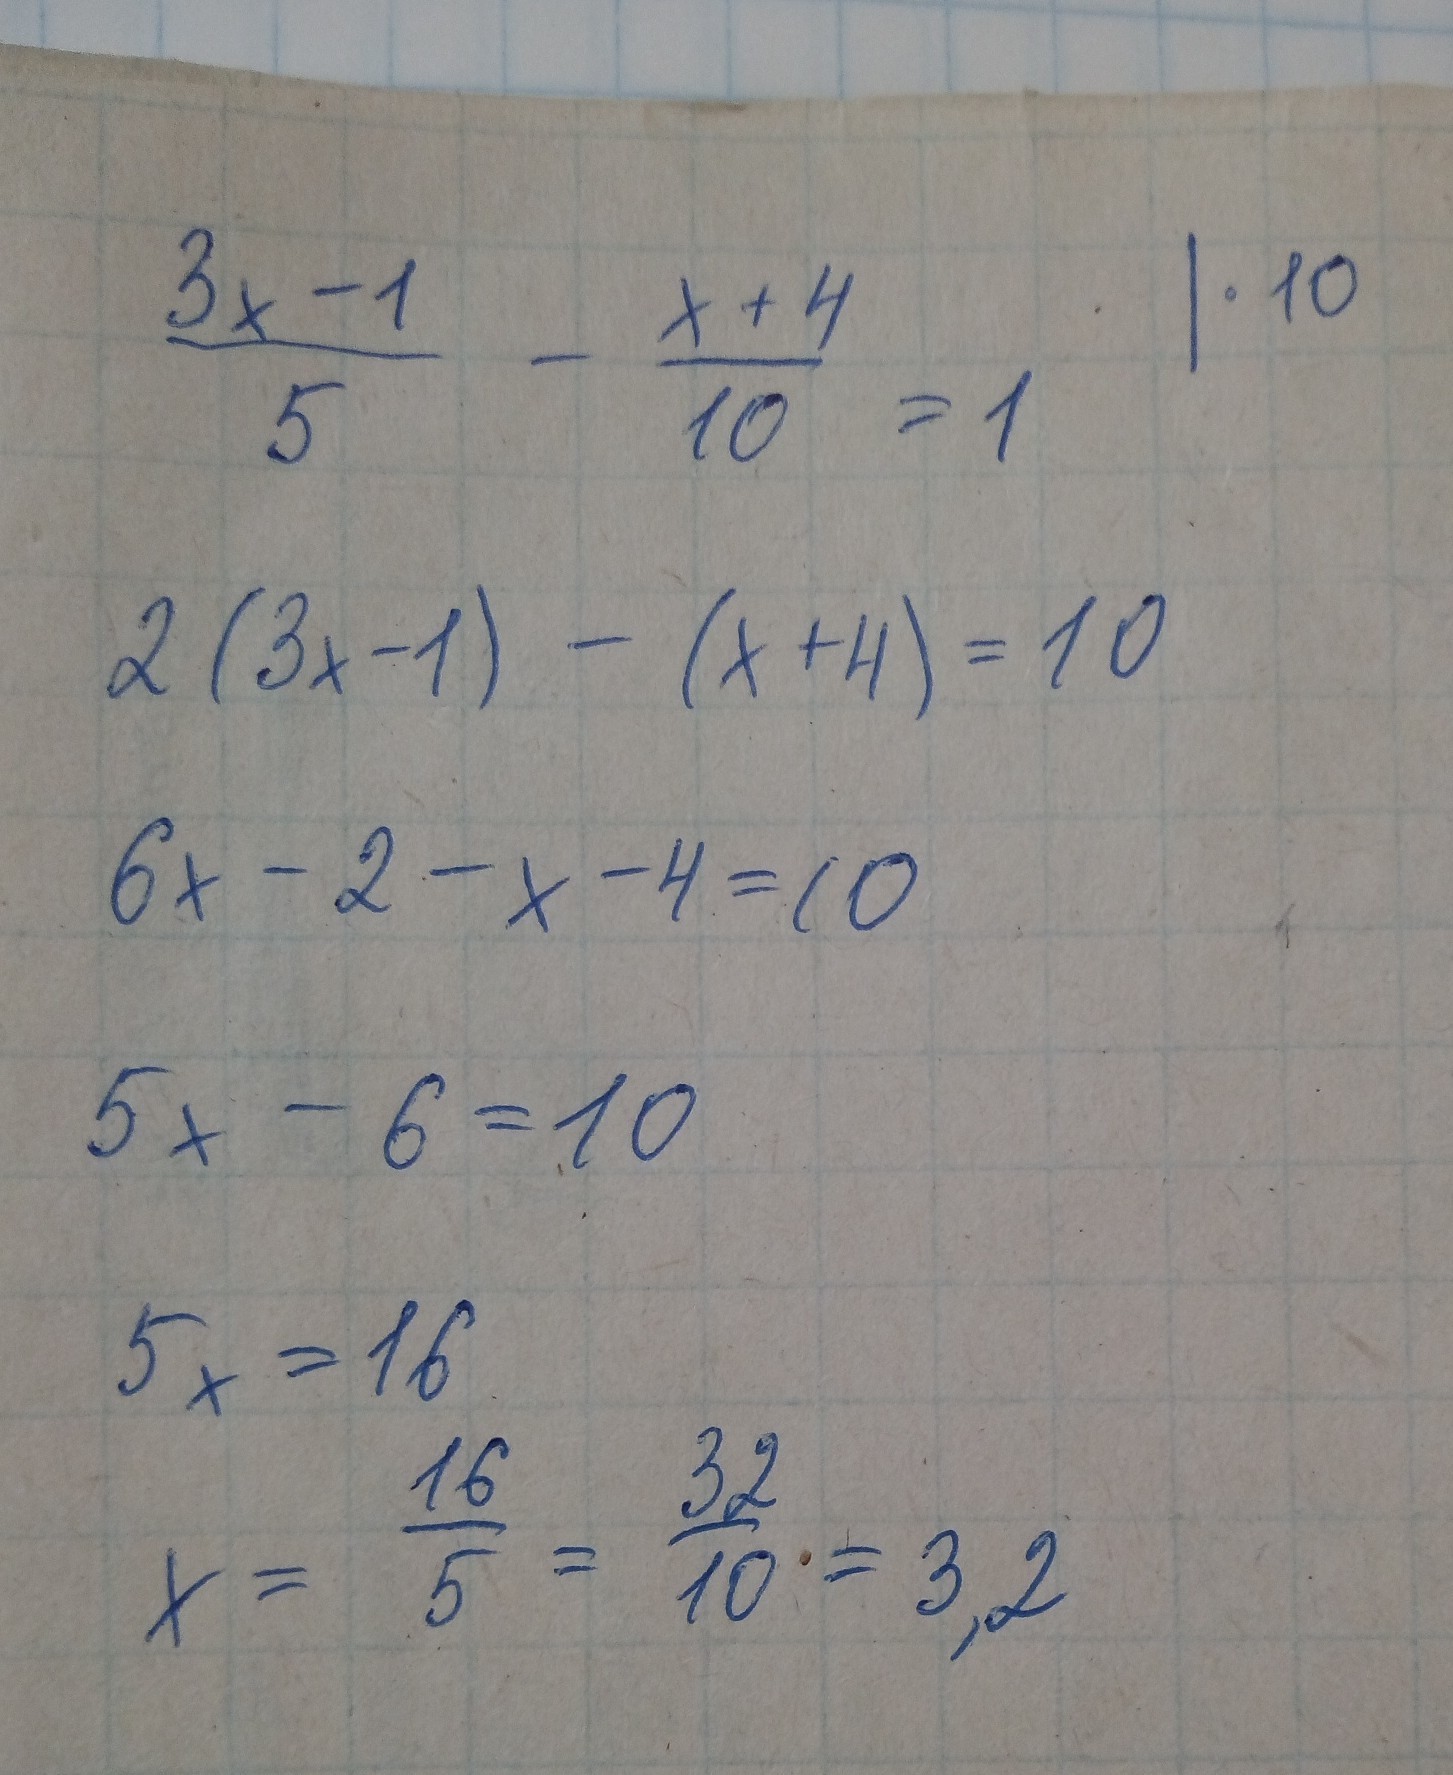 (3x-1)/5 - (x+4)/10 = 1 | · 10
2(3x-1) - (x+4) = 10
6x - 2 - x - 4 = 10
5x - 6 = 10
5x = 16
x = 16/5 = 32/10 = 3,2